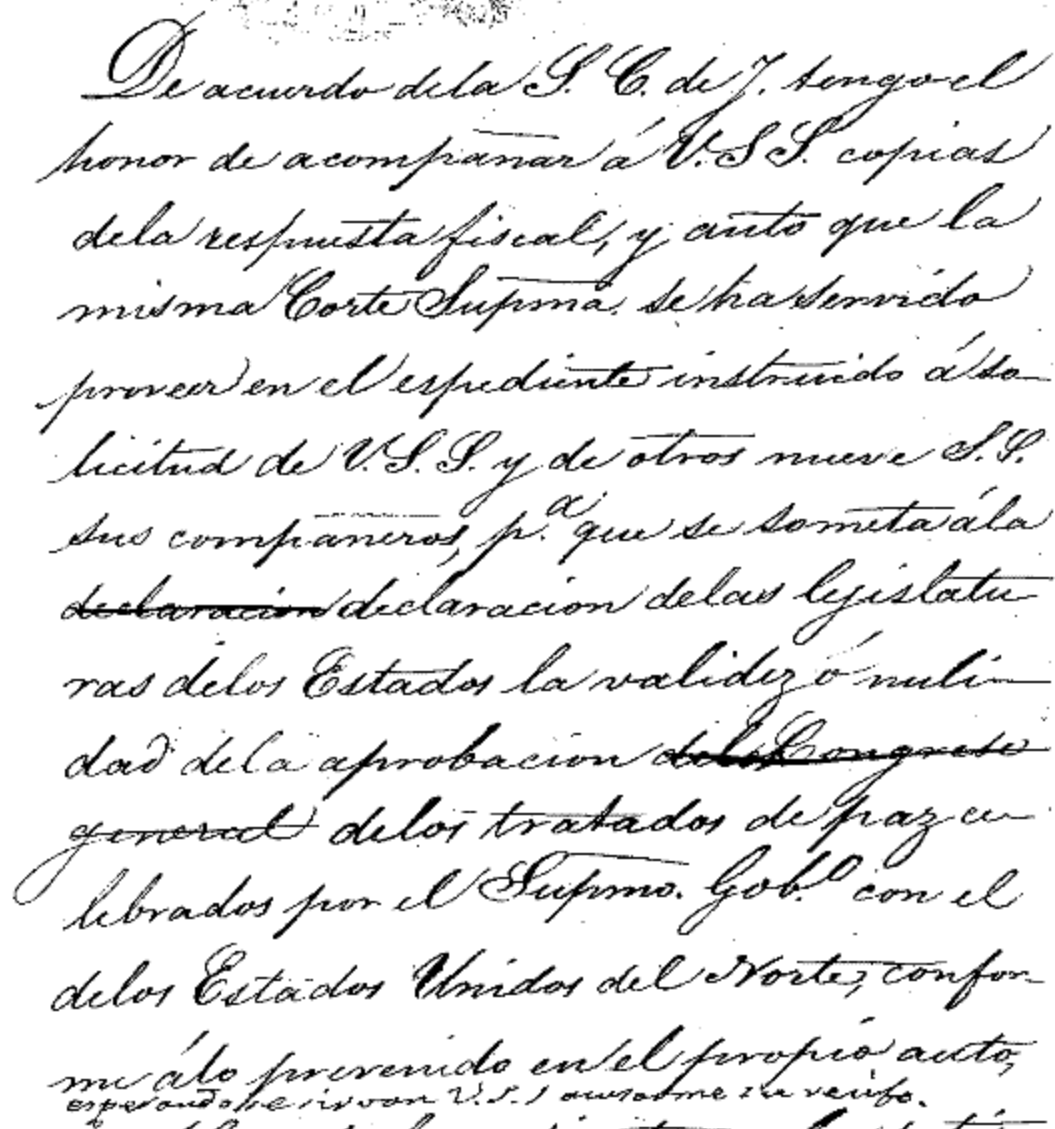 De acuerdo dela S. C. de J. tengo el
honor de acompañar á V.S.S. copias
dela respuesta fiscal, y auto que la
misma Corte Supma. se ha servido
proveer en el espediente instruido á so-
licitud de V.S.S. y de otros nueve S.S.
sus compañeros, p.a que se someta ála
declaracion declaracion delas lejislatu-
ras delos Estados la validez ó nuli-
dad dela aprobacion del Congreso
general delos tratados de paz ce-
lebrados por el Supmo. Gob.o con el
delos Estados Unidos del Norte, confor-
me álo prevenido en el propio auto,
esperando se sirvan V.S.S. avisarme su recibo.